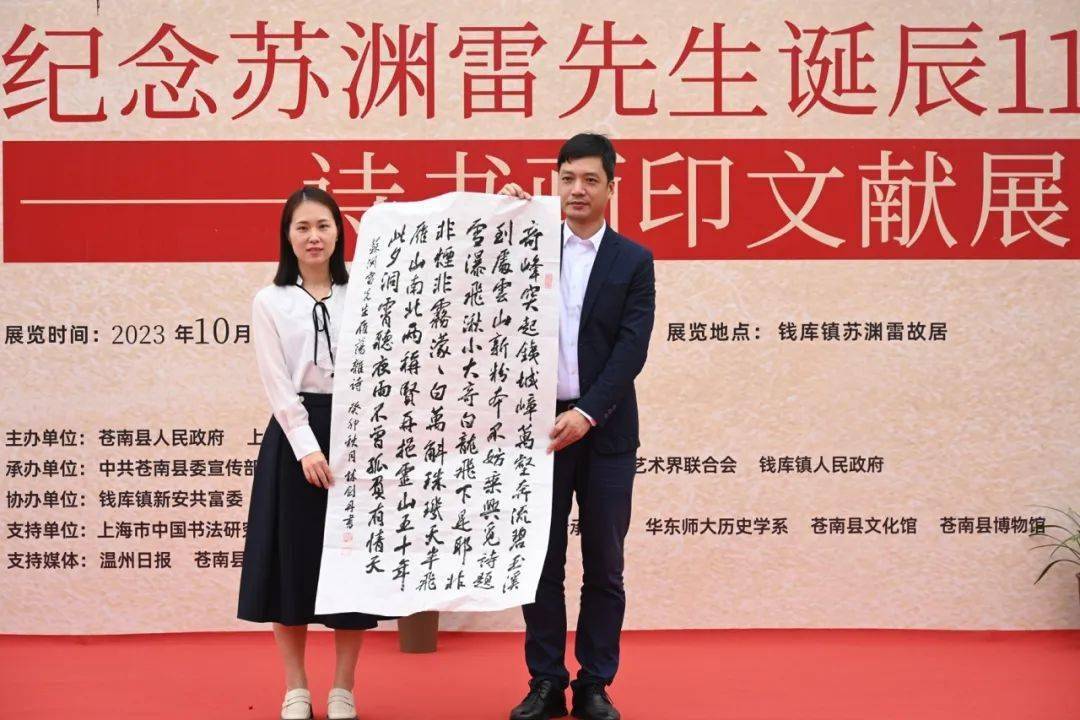 纪念苏渊雷先生诞辰11
诗书画印文献展
展览时间：2023 年10月
展览地点： 钱库镇苏渊雷故居
主办单位：苍南县人民政府 上
承办单位：中共苍南县委宣传部 艺术界联合会 钱库镇人民政府
协办单位：钱库镇新安共富委
支持单位：上海市中国书法研究 华东师大历史学系 苍南县文化馆 苍南县博物馆
支持媒体：温州日报 苍南县
奇峰突起鐵城嶂萬壑奔流碧玉溪
到處雲山新粉本不妨乘興覓詩題
雪瀑飛湫小大奇白龍飛下是耶非
非煙非霧濛〻白萬斛珠璣天半飛
雁山南北兩稱賢再挹靈山五十年
此夕洞霄聽夜雨不曾孤負有情天
蘇淵雷先生雁蕩雜詩 癸卯秋月 林劍丹書